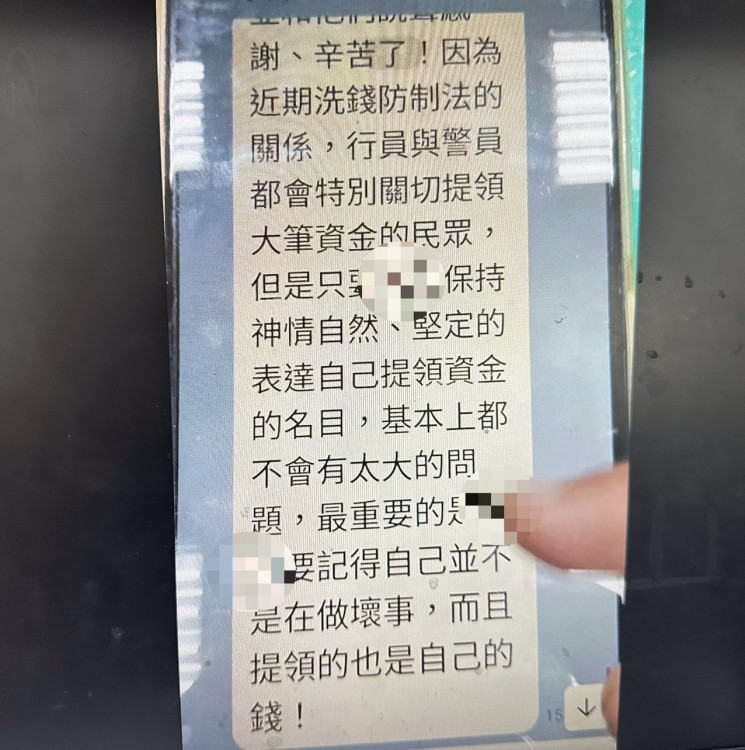 謝、辛苦了！因為
近期洗錢防制法的
關係，行員與警員
都會特別關切提領
大筆資金的民眾，
但是只要保持
神情自然、堅定的
表達自己提領資金
的名目，基本上都
不會有太大的問
題，最重要的是
要記得自己並不
是在做壞事，而且
提領的也是自己的
錢！
15